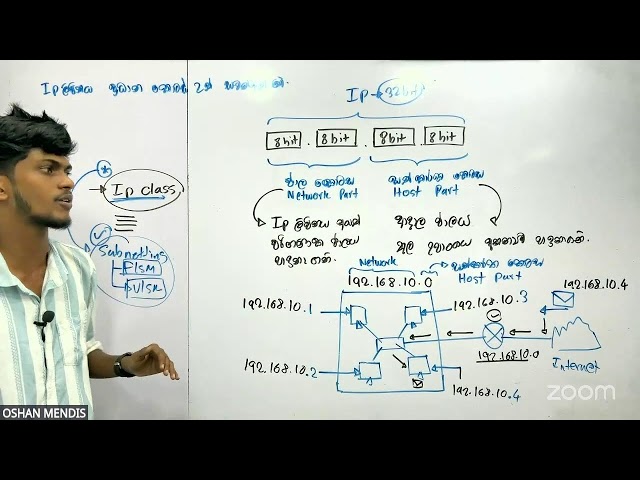 Ip ලිපිනය ප්‍රධාන කොටස් 2ක්
Ip → 32bit
8bit . 8bit . 8bit . 8bit
ජාල කොටස
Network Part
සත්කාරක කොටස
Host Part
Ip class
Subnetting
FLSM
VLSM
Ip ලිපිනය අයත්
හඳුනා ගනී.
අදාල ජාලය
තුල උපාංගය අනන්‍යව හඳුනාගනී.
Network
සත්කාරක කොටස
Host Part
192.168.10.0
192.168.10.1
192.168.10.3
192.168.10.4
192.168.10.0
Internet
192.168.10.2
192.168.10.4
zoom
OSHAN MENDIS